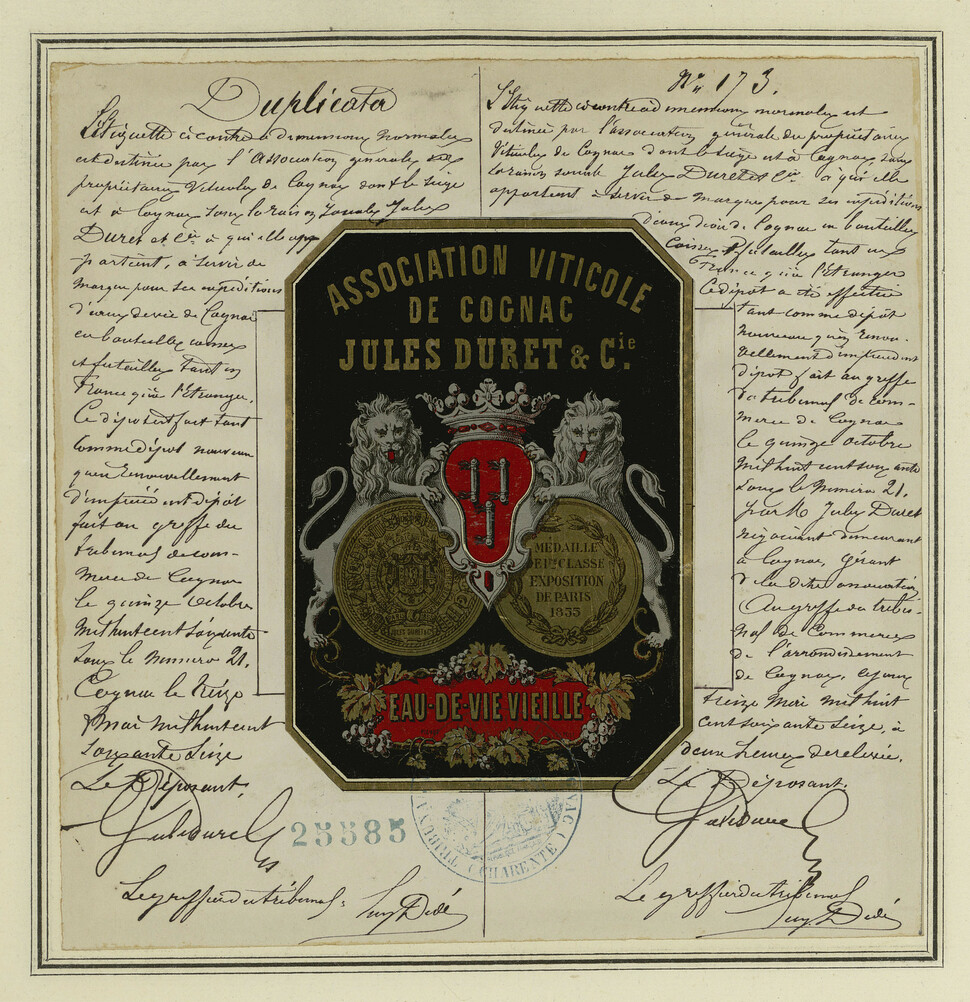 Duplicata
L'étiquette ci contre à dimensions normales
est destinée par l'Association générale des
propriétaires Viticoles de Cognac dont le siège
est à Cognac sous la raison sociale Jules
Duret et Cie à qui elle ap-
partient, à servir de
marque pour ses expéditions
d'eaux de vie de Cognac
en bouteilles caisses
et futailles tant en
France qu'à l'Etranger.
Ce dépôt est fait tant
comme dépôt nouveau
qu'en renouvellement
d'un précédent dépôt
fait au greffe du
tribunal de com-
merce de Cognac
le quinze Octobre
mil huit cent soixante
sous le numéro 21.
Cognac le treize
mai mil huit cent
soixante seize
Le Déposant,
Jules Duret
Le greffier du tribunal:
Didé
No 173.
L'étiquette ci contre à dimensions normales est
destinée par l'association générale des propriétaires
Viticoles de Cognac dont le siège est à Cognac sous
la raison sociale Jules Duret et Cie à qui elle
appartient à servir de marque pour ses expéditions
d'eaux de vie de Cognac en bouteilles
Caisses & futailles tant en
France qu'à l'Etranger
Ce dépôt a été effectué
tant comme dépôt
nouveau qu'en renou-
vellement d'un précédent
dépôt fait au greffe
du tribunal de com-
merce de Cognac
le quinze octobre
mil huit cent soixante
sous le numéro 21.
par M Jules Duret
négociant demeurant
à Cognac, gérant
de la dite association
Au greffe du tribu-
nal de Commerce
de l'arrondissement
de Cognac, ce jour
treize Mai mil huit
cent soixante seize, à
deux heures de relevée.
Le Déposant.
Jules Duret
Le greffier du tribunal
Didé
ASSOCIATION VITICOLE
DE COGNAC
JULES DURET & Cie.
MÉDAILLE
DE 1re CLASSE
EXPOSITION
DE PARIS
1855
JULES DURET & Cie
EAU-DE-VIE VIEILLE
25585
TRIBUNAL
AC (CHARENTE)